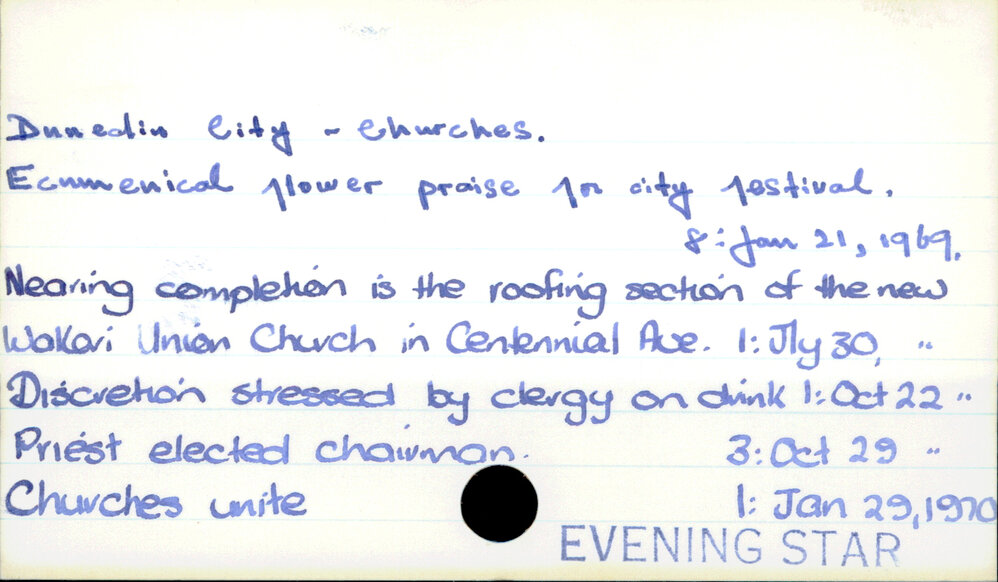 Dunedin City - Churches.
Ecumenical flower praise for city festival.
8: Jan 21, 1969.
Nearing completion is the roofing section of the new
Wakari Union Church in Centennial Ave. 1: Jly 30, "
Discretion stressed by clergy on drink 1: Oct 22 "
Priest elected chairman. 3: Oct 29 "
Churches unite 1: Jan 29, 1970
EVENING STAR